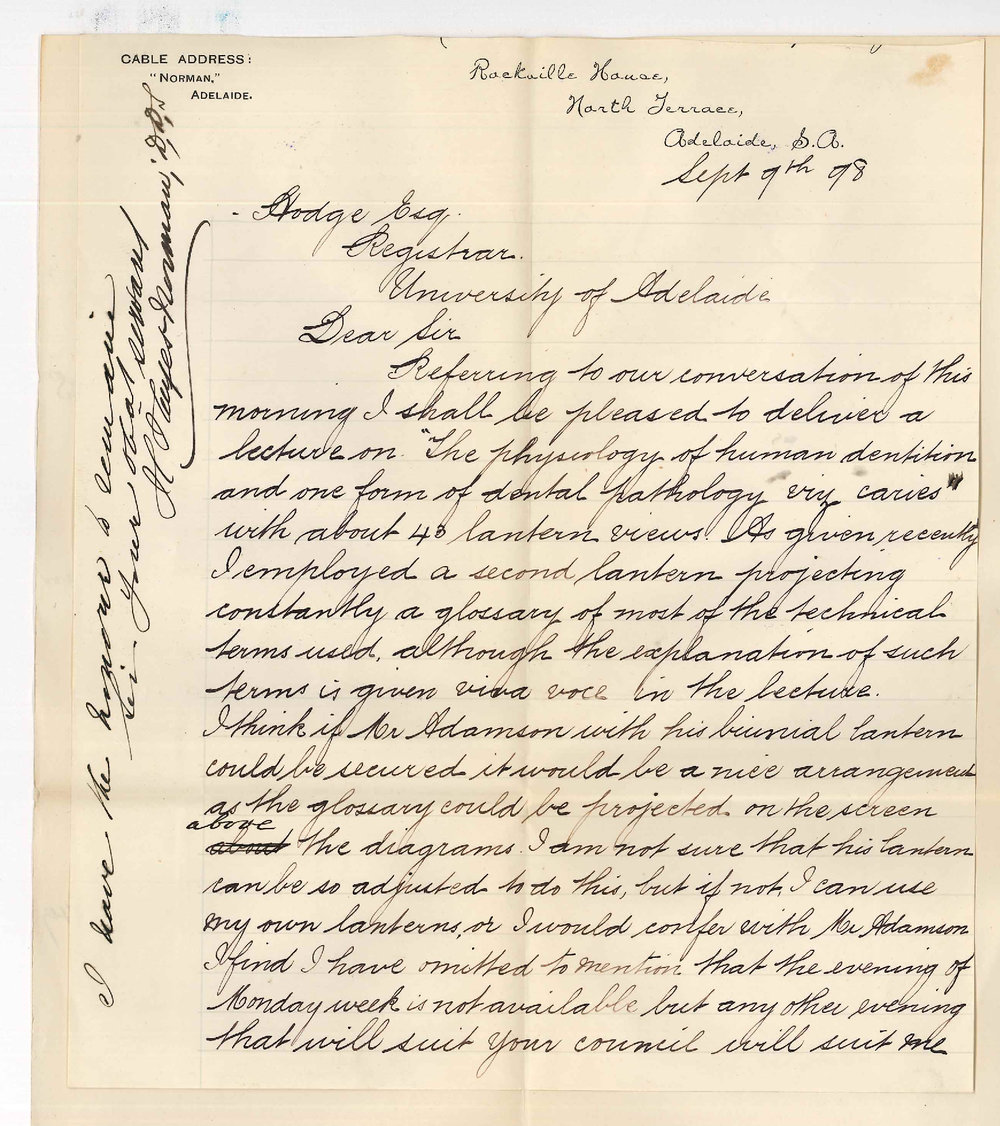 CABLE ADDRESS:
"NORMAN,"
ADELAIDE.
Rockville House,
North Terrace,
Adelaide, S.A.
Sept 9th 98
- Hodge Esq.
Registrar.
University of Adelaide
Dear Sir
Referring to our conversation of this
morning I shall be pleased to deliver a
lecture on "The physiology of human dentition
and one form of dental pathology viz caries"
with about 43 lantern views. As given recently
I employed a second lantern projecting
constantly a glossary of most of the technical
terms used, although the explanation of such
terms is given viva voce in the lecture.
I think if Mr Adamson with his biunial lantern
could be secured it would be a nice arrangement
as the glossary could be projected on the screen
above
about the diagrams. I am not sure that his lantern
can be so adjusted to do this, but if not, I can use
my own lanterns, or I would confer with Mr Adamson
I find I have omitted to mention that the evening of
Monday week is not available but any other evening
that will suit your council will suit me
I have the honour to remain
Sir
Your obdt servant
A Norman, D.D.S